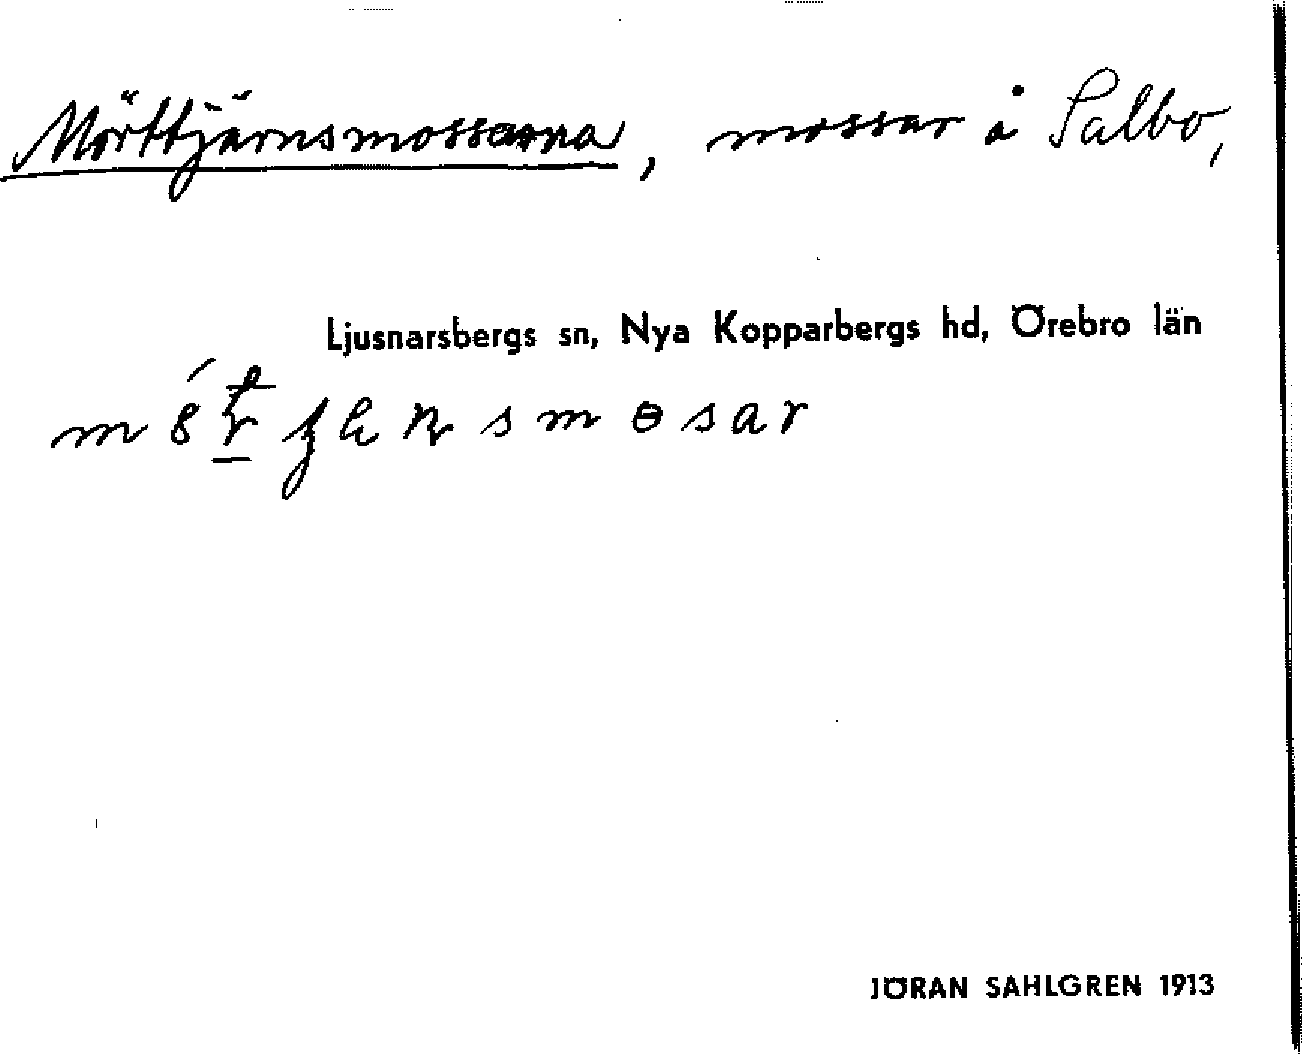 Mörttjärnsmossarna, mossar å Salbo,
Ljusnarsbergs sn, Nya Kopparbergs hd, Örebro län
JÖRAN SAHLGREN 1913